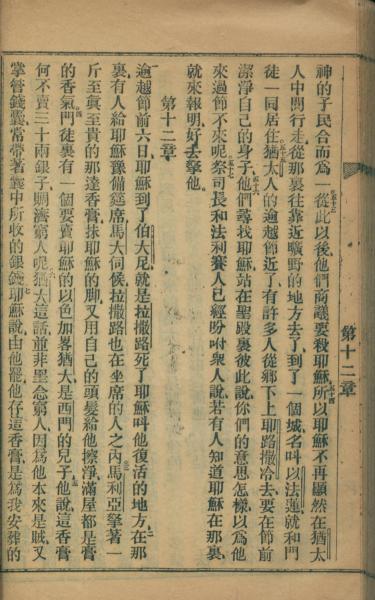 神的子民合而爲一從此以後他們商議要殺耶穌所以耶穌不再顯然在猶太
人中間行走從那裏往靠近曠野的地方去了到了一個城名叫以法蓮就和門
徒一同居住猶太人的逾越節近了有許多人從鄉下上耶路撒冷去要在節前
潔淨自己的身子他們尋找耶穌站在聖殿裏彼此說你們的意思怎樣以爲他
來過節不來呢祭司長和法利賽人已經吩咐衆人說若有人知道耶穌在那裏
就來報明好去拏他
第十二章
逾越節前六日耶穌到了伯大尼就是拉撒路死了耶穌叫他復活的地方在那
裏有人給耶穌豫備筵席馬大伺候拉撒路也在坐席的人之內馬利亞拏著一
斤至眞至貴的那達香膏抹耶穌的脚又用自己的頭髮給他擦淨滿屋都是膏
的香氣門徒裏有一個要賣耶穌的以色加畧猶大是西門的兒子他說這香膏
何不賣三十兩銀子賙濟窮人呢猶大這話並非罣念窮人因爲他本來是賊又
掌管錢囊常帶著囊中所收的銀錢耶穌說由他罷他存這香膏是爲我安葬的
第十二章